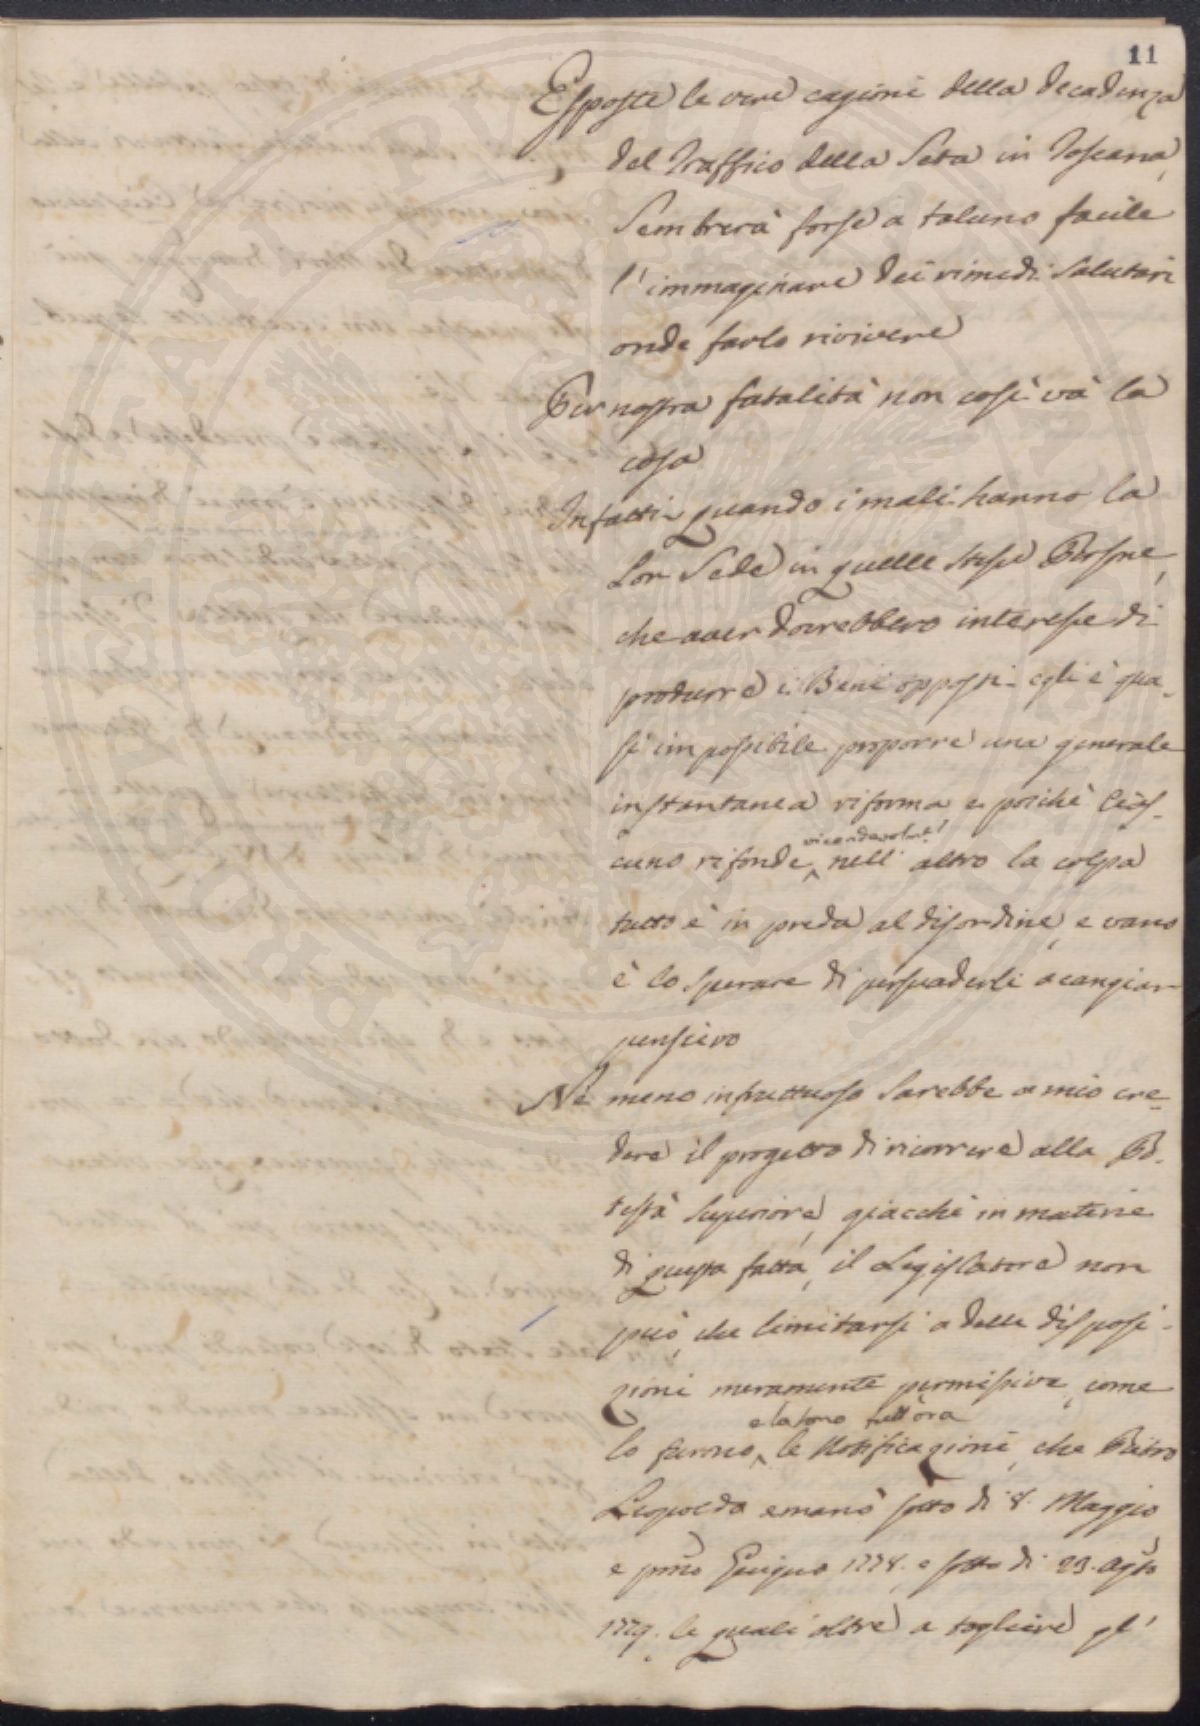 11
Esposte le vere cagioni della decadenza
del Traffico della Seta in Toscana,
Sembrerà forse a taluno facile
l'immaginare dei rimedi salutari
onde farlo rivivere
Per nostra fatalità non così và la
cosa
Infatti quando i mali hanno la
lor Sede in quelle stesse Persone,
che aver dovrebbero interesse di
produrre i Beni opposti egli è qua-
si impossibile proporre una generale
instantanea riforma e poichè Cias-
vicendevolme
cuno rifonde ^ nell' altro la colpa
tutto è in preda al disordine, e vano
è lo sperare di persuaderli a cangiar
pensiero
Nè meno infruttuoso sarebbe a mio cre-
dere il progetto di ricorrere alla Po-
testà Superiore, giacchè in materie
di questa fatta, il Legislatore non
può, che limitarsi a delle disposi-
zioni meramente permissive, come
tutt'ora
lo furono ^ le Notificazioni, che Pietro
Leopoldo emanò sotto dì 8. Maggio
e pmo Giugno 1778. e sotto dì 23. Agto
1779. le quali oltre a togliere gl'